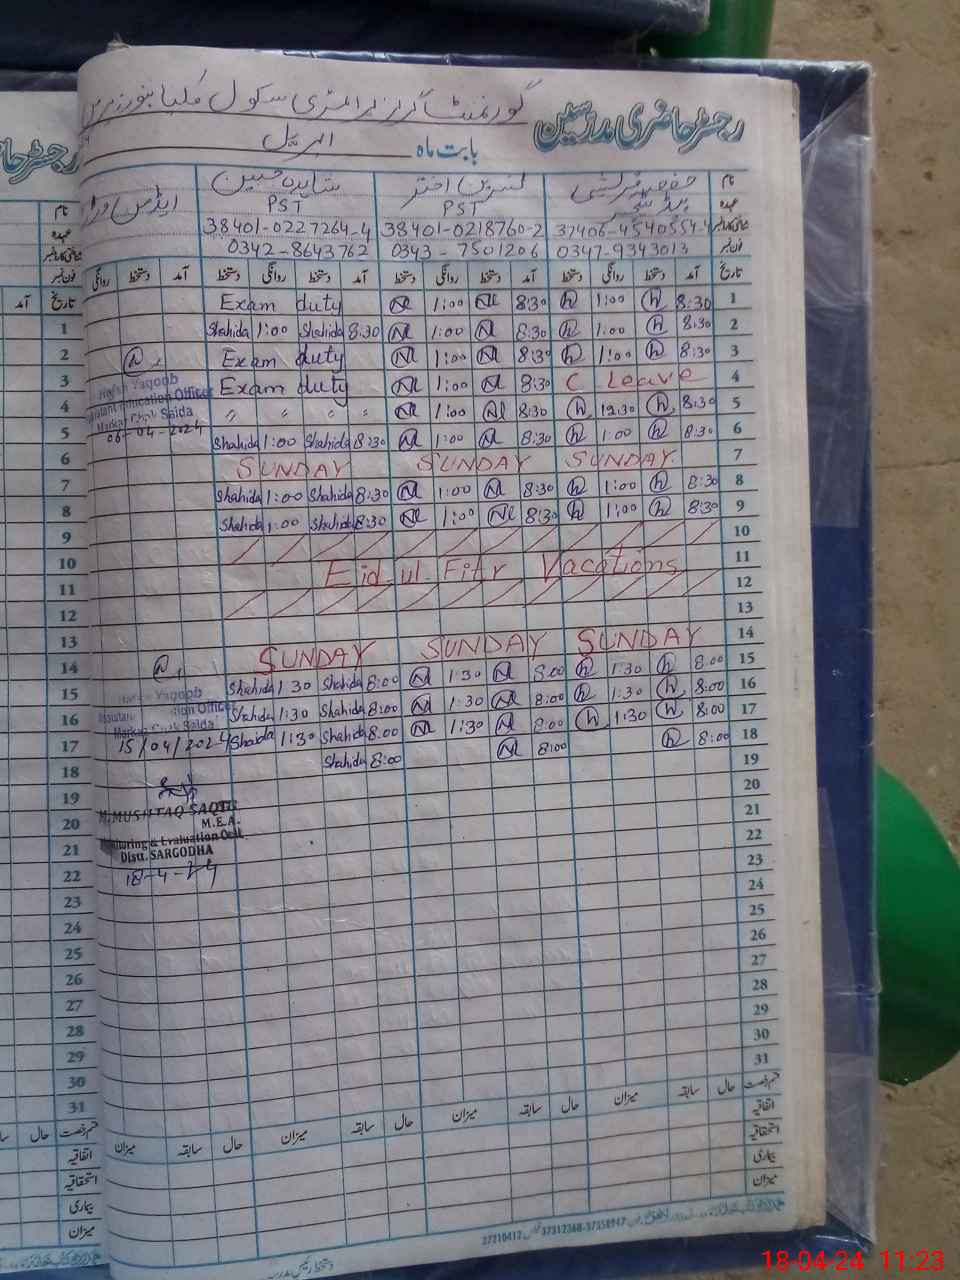 رجسٹر حاضری مدرسین
گورنمنٹ گرلز پرائمری سکول
بابت ماہ اپریل
نام شاہدہ حسین نسرین اختر
عہدہ PST PST
37406-4540554-4 38401-0218760-2 38401-0227264-4
فون نمبر 0347-9343013 0343-7501206 0342-8643762
تاریخ آمد دستخط روانگی دستخط آمد دستخط روانگی دستخط آمد دستخط روانگی دستخط آمد دستخط روانگی
1 8:30 h 1:00 h 8:30 N 1:00 N Exam duty
2 8:30 h 1:00 h 8:30 N 1:00 N 8:30 Shahida 1:00 Shahida
3 8:30 h 1:00 h 8:30 N 1:00 N Exam duty
4 C Leave 8:30 N 1:00 N Exam duty
5 8:30 h 12:30 h 8:30 N 1:00 N " " " "
6 8:30 h 1:00 h 8:30 N 1:00 N 8:30 Shahida 1:00 Shahida
7 SUNDAY SUNDAY SUNDAY
8 8:30 h 1:00 h 8:30 N 1:00 N 8:30 Shahida 1:00 Shahida
9 8:30 h 1:00 h 8:30 N 1:00 N 8:30 Shahida 1:00 Shahida
10
11 Eid ul Fitr Vacations
12
13
14 SUNDAY SUNDAY SUNDAY
15 8:00 h 1:30 h 8:00 N 1:30 N 8:00 Shahida 1:30 Shahida
16 8:00 h 1:30 h 8:00 N 1:30 N 8:00 Shahida 1:30 Shahida
17 8:00 h 1:30 h 8:00 N 1:30 N 8:00 Shahida 1:30 Shahida
18 8:00 h 8:00 N 8:00 Shahida
19
20
21
22
23
24
25
26
27
28
29
30
31
Yaqoob
Assistant Education Officer
Markaz Chak Saida
06-04-2024
Yaqoob
Markaz Chak Saida
15/04/2024
M. MUSHTAQ SAQIB
M.E.A.
Monitoring & Evaluation Cell
Distt. SARGODHA
18-4-24
قسم رخصت حال سابقہ میزان حال سابقہ میزان حال سابقہ میزان حال سابقہ میزان
اتفاقیہ
استحقاقیہ
بیماری
میزان
37210417 37312360-37358947
نام
عہدہ
فون نمبر
تاریخ
آمد
1
2
3
4
5
6
7
8
9
10
11
12
13
14
15
16
17
18
19
20
21
22
23
24
25
26
27
28
29
30
31
قسم رخصت حال
اتفاقیہ
استحقاقیہ
بیماری
میزان
18-04-24 11:23